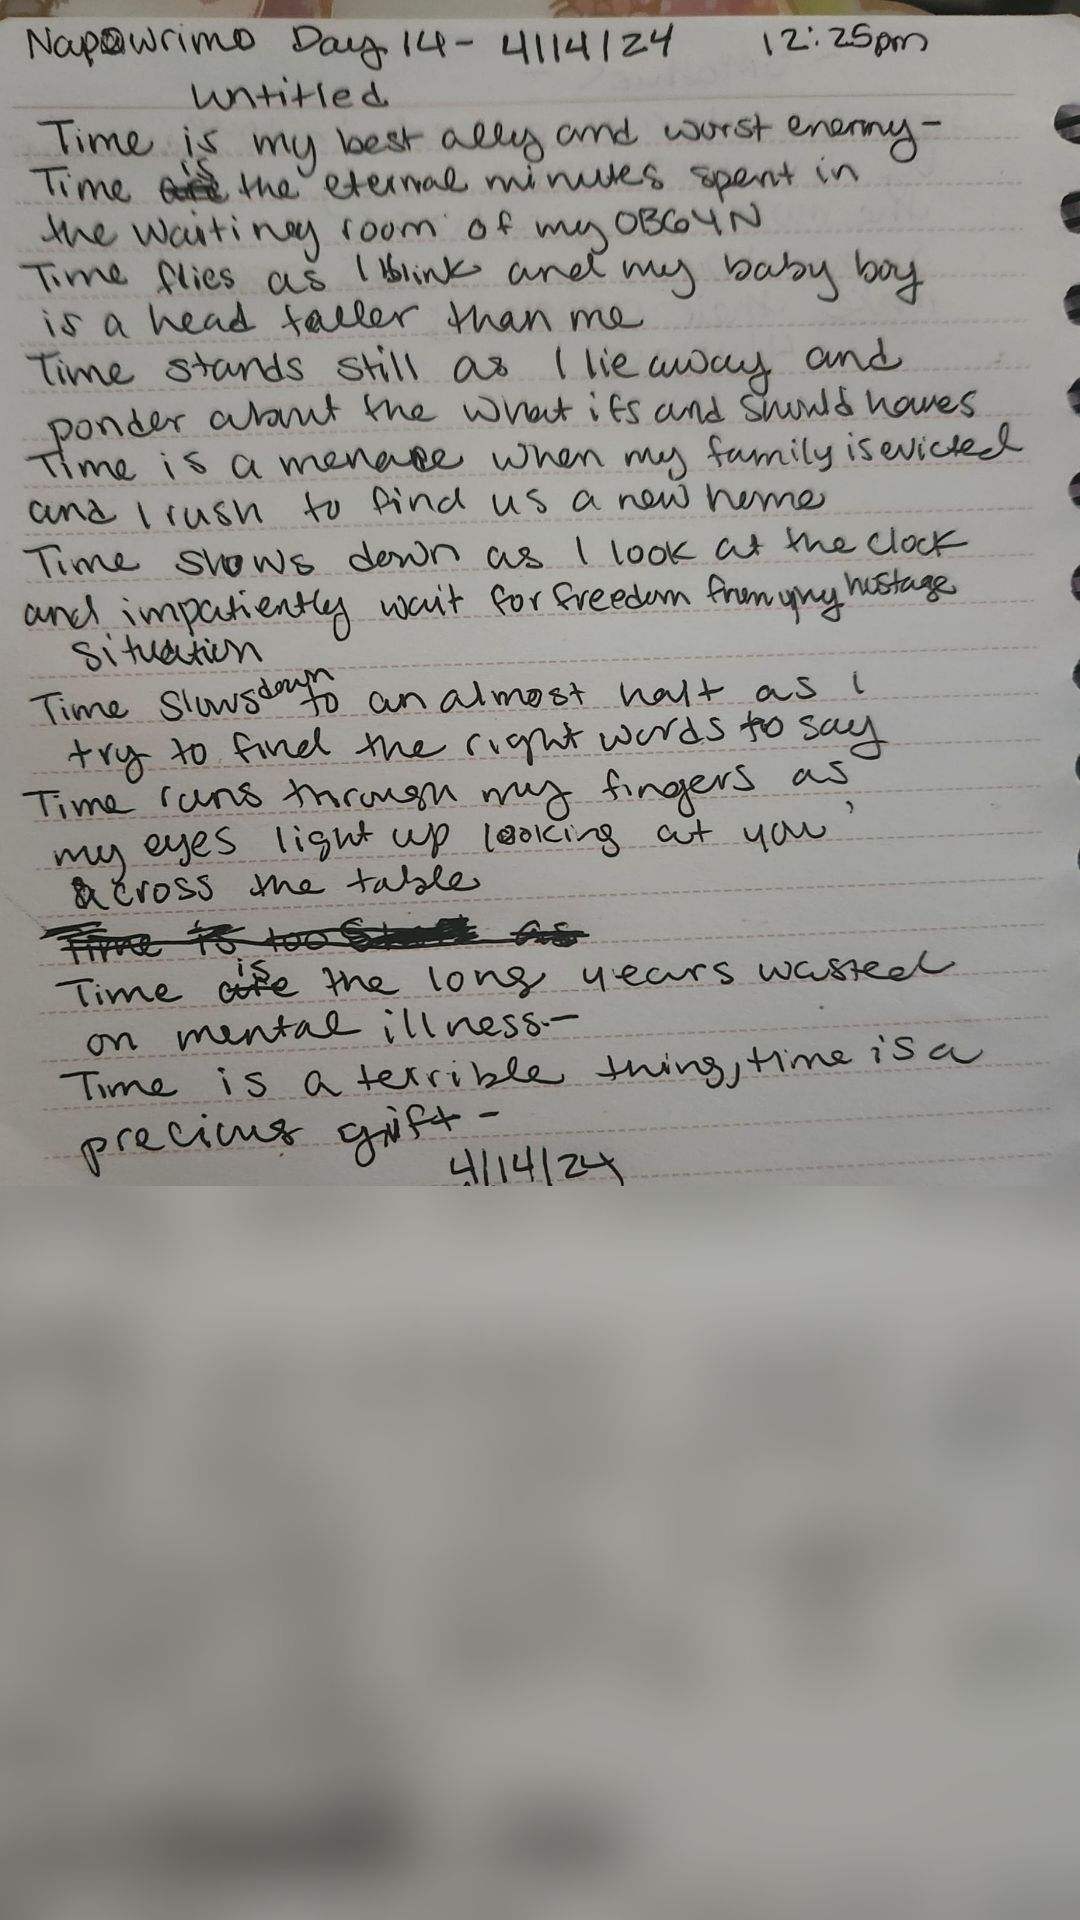 Napowrimo Day 14- 4/14/24 12:25pm
Untitled
Time is my best ally and worst enemy-
Time is the eternal minutes spent in
the waiting room of my OBGYN
Time flies as I blink and my baby boy
is a head taller than me
Time stands still as I lie away and
ponder about the what ifs and should haves
Time is a menace when my family is evicted
and I rush to find us a new home
Time slows down as I look at the clock
and impatiently wait for freedom from my hostage
situation
Time slows down to an almost halt as I
try to find the right words to say
Time runs through my fingers as
my eyes light up looking at you,
across the table
Time is too as
Time is the long years wasted
on mental illness.-
Time is a terrible thing, time is a
precious gift-
4/14/24